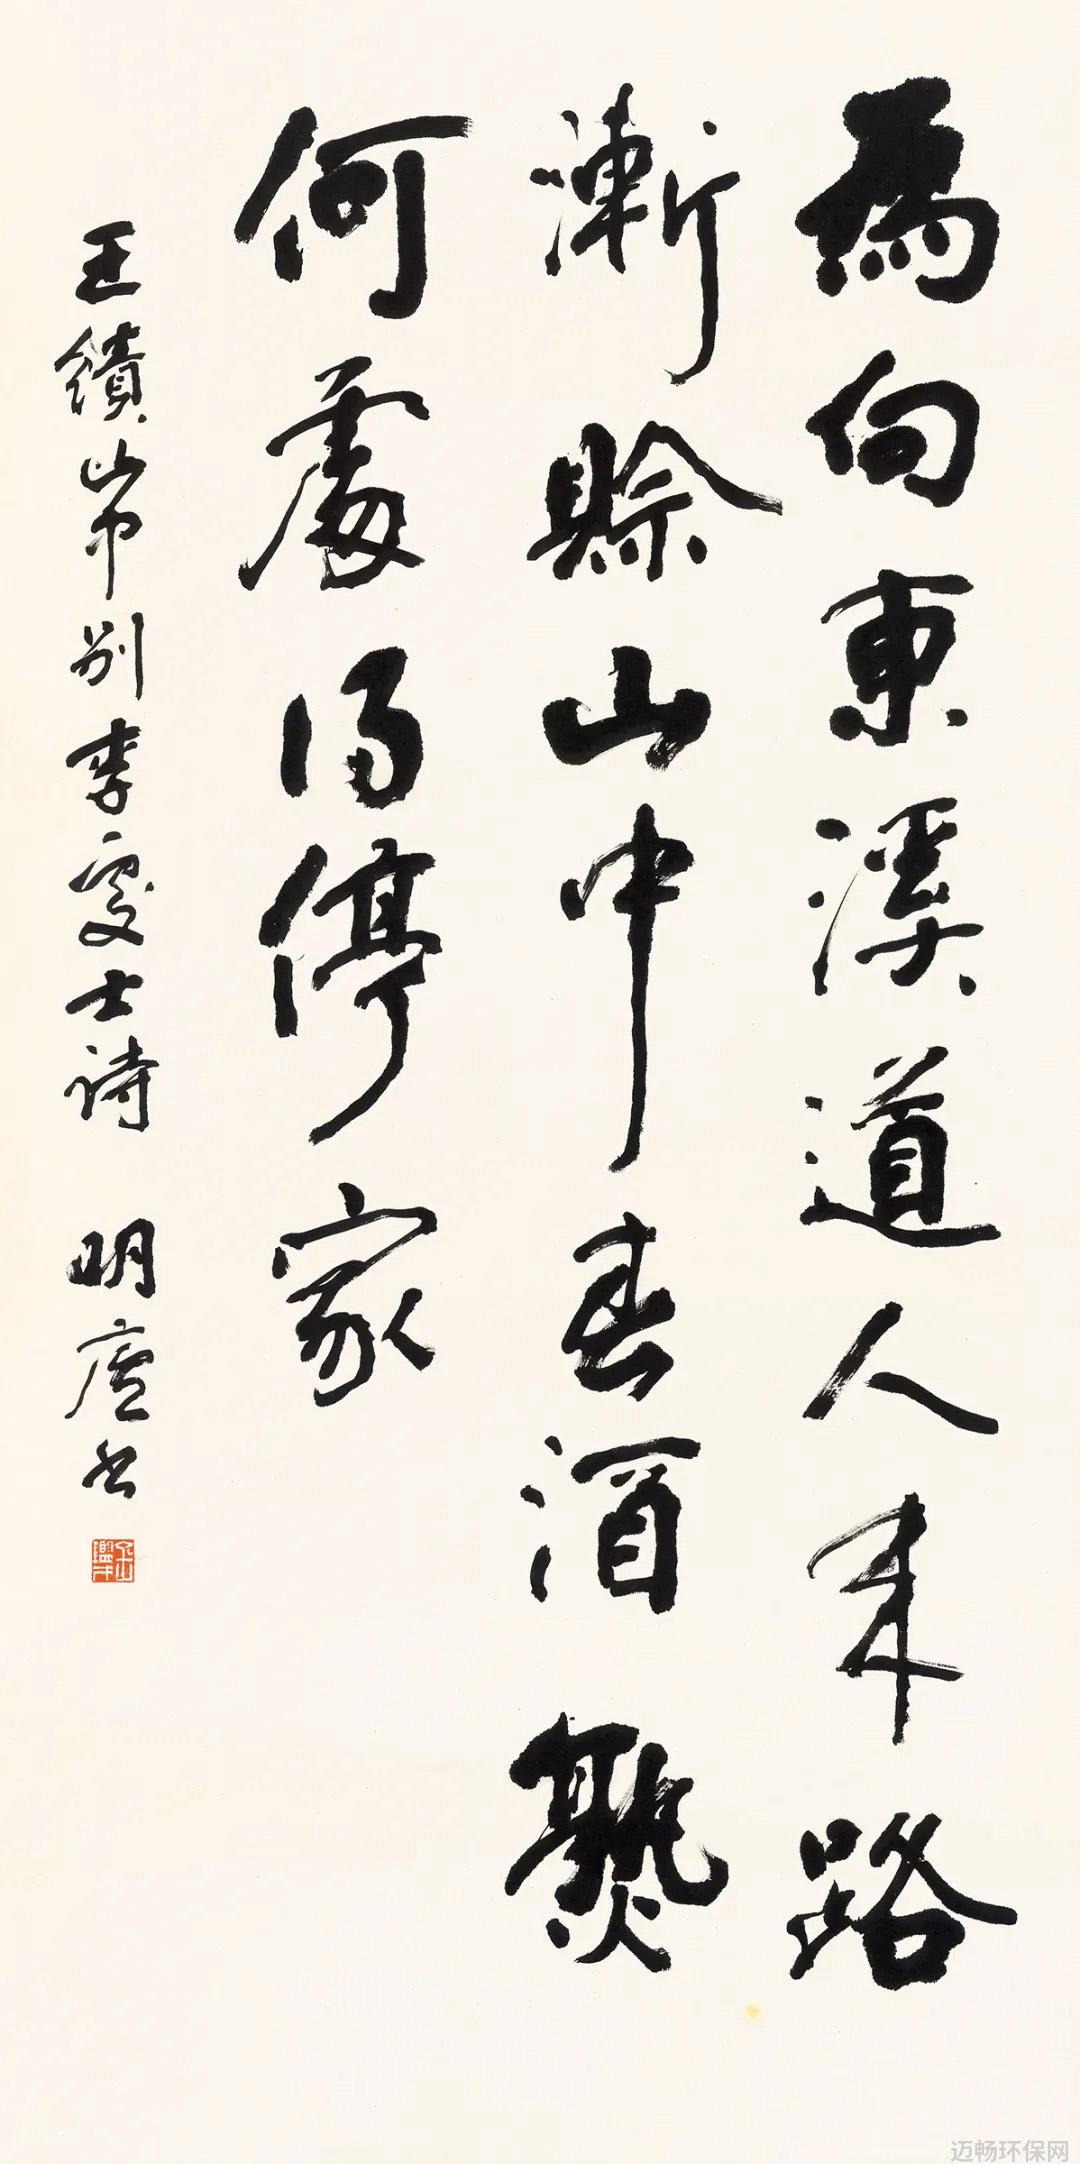 為向東溪道人来路
漸賒山中春酒熟
何處得停家
王績山中别李處士诗 明廬书
金鑑才
迈畅环保网